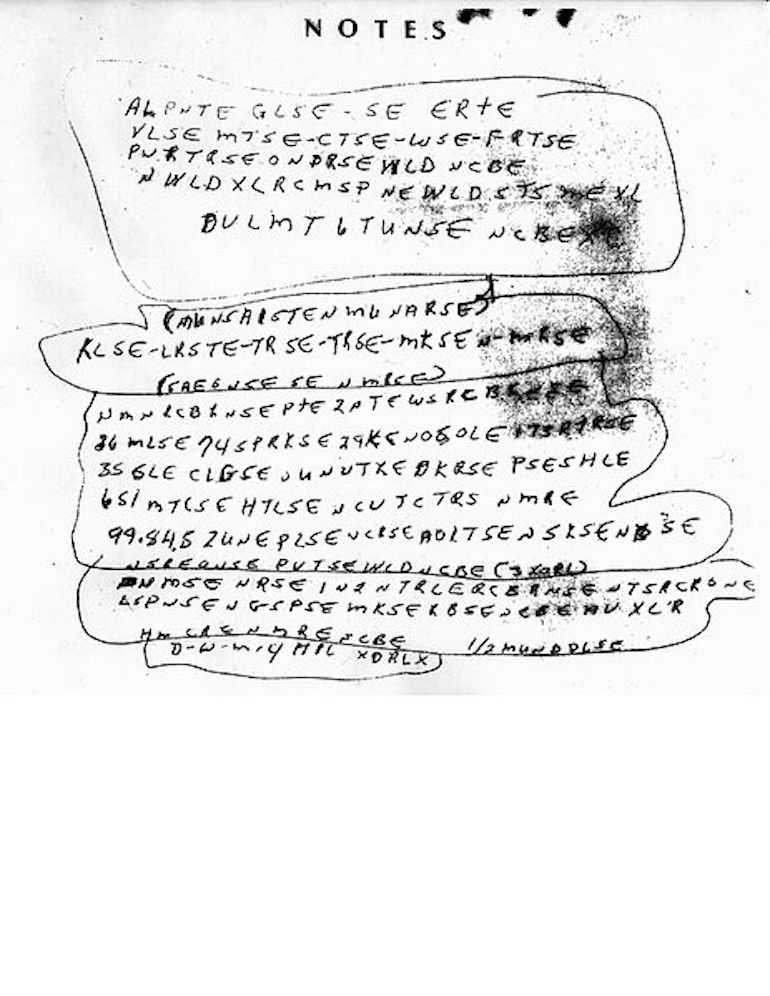 NOTES
ALPNTE GLSE - SE ERTE
VLSE MTSE-CTSE-WSE-FRTSE
PNRTRSE ONDRSEWLD NCBE
NWLDXLRCMSP NEWLDSTS MEXL
DULMT 6TUNSE NCBEXC
(MUNSAISTENMUNARSE)
KLSE-LRSTE-TRSE-TRSE-MKSEN-MRSE
(SAEGNSE SE NMRSE)
NMNRCBRNSEPTE2PTEWSRCBRNSE
36MLSE74SPRKSE29KENOSOLE173RTRSE
35GLE CLGSE UUNUTXE DKRSE PSESHLE
651MTCSE HTLSE NCUTCTRS NMRE
99.84.5 2UNEPLSE NCRSE AOLTSE NSKSE NBSE
NSREONSE PUTSEWLDNCBE (3XORL)
NMSE NRSE IN2NTRLERCBRNSENTSRCRONE
LSPNSENGSPSE MKSERBSENCBE AUXLR
HMCRENMRENCBE 1/2MUNDPLSE
D-W-M-4MPL XDRLX